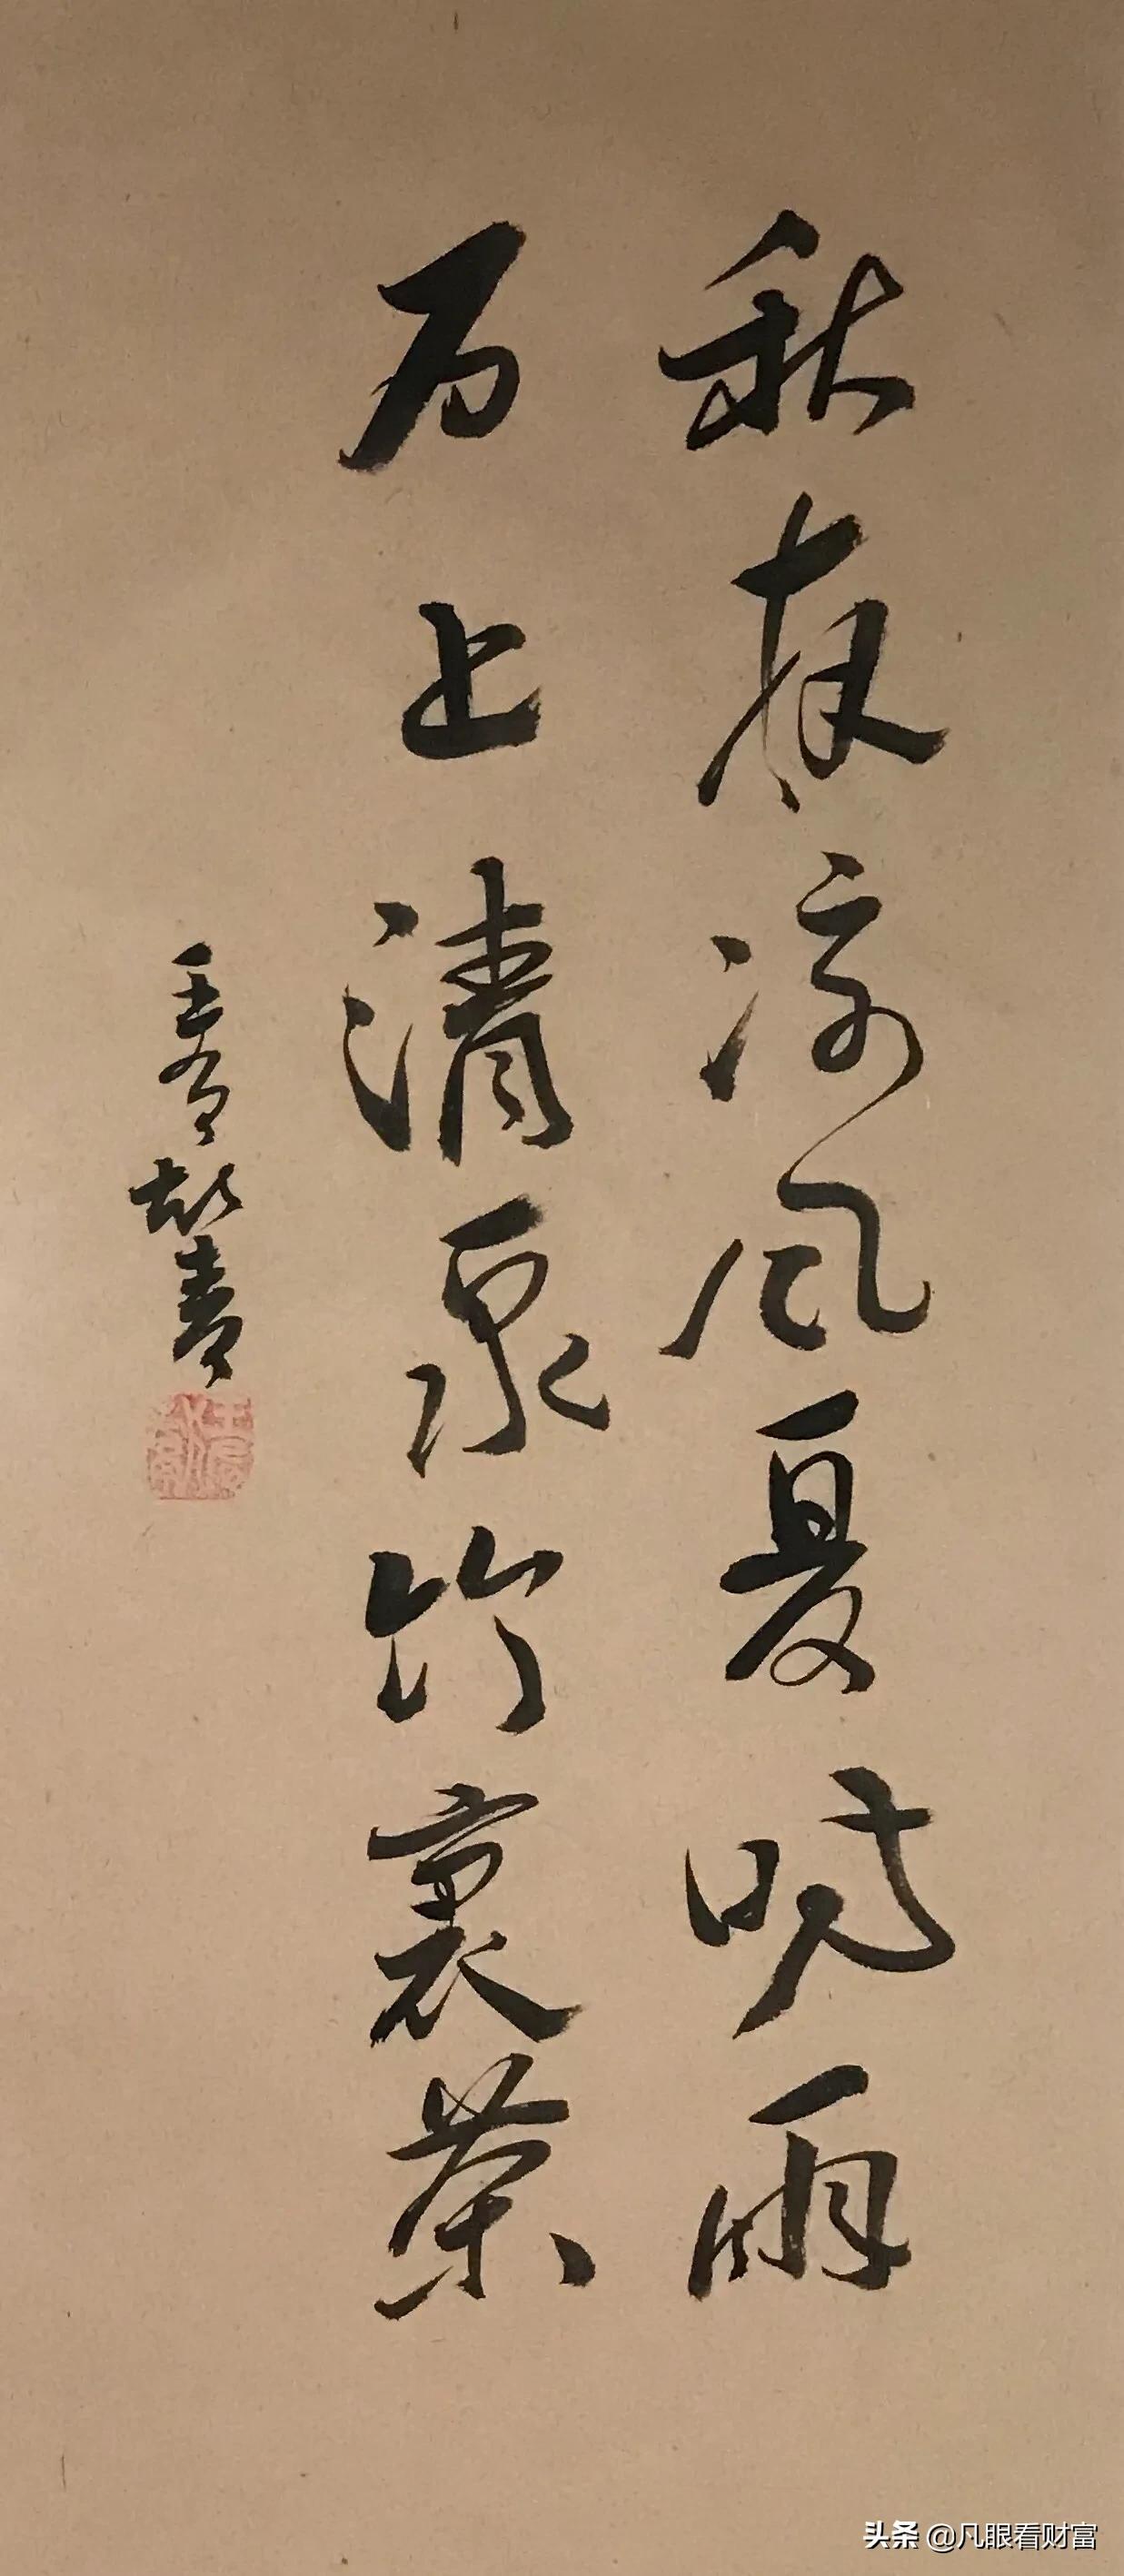 秋夜凉风夏时雨
石上清泉竹里茶
头条 @凡眼看财富